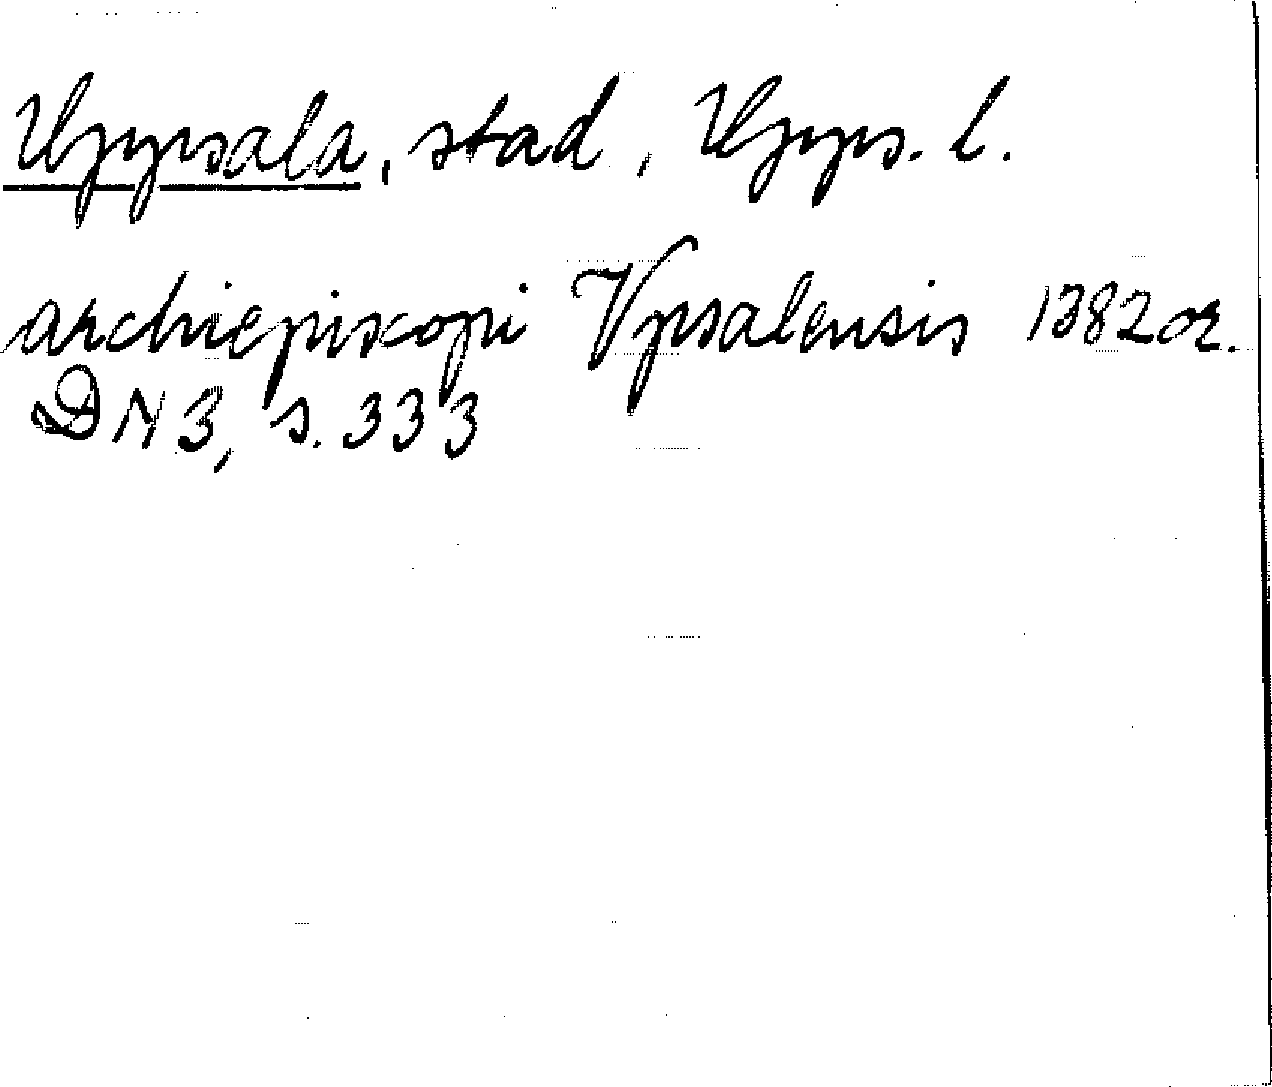 Uppsala, stad, Upps. l.
archiepiscopi Vpsalensis 1382 or.
DN 3, s. 333